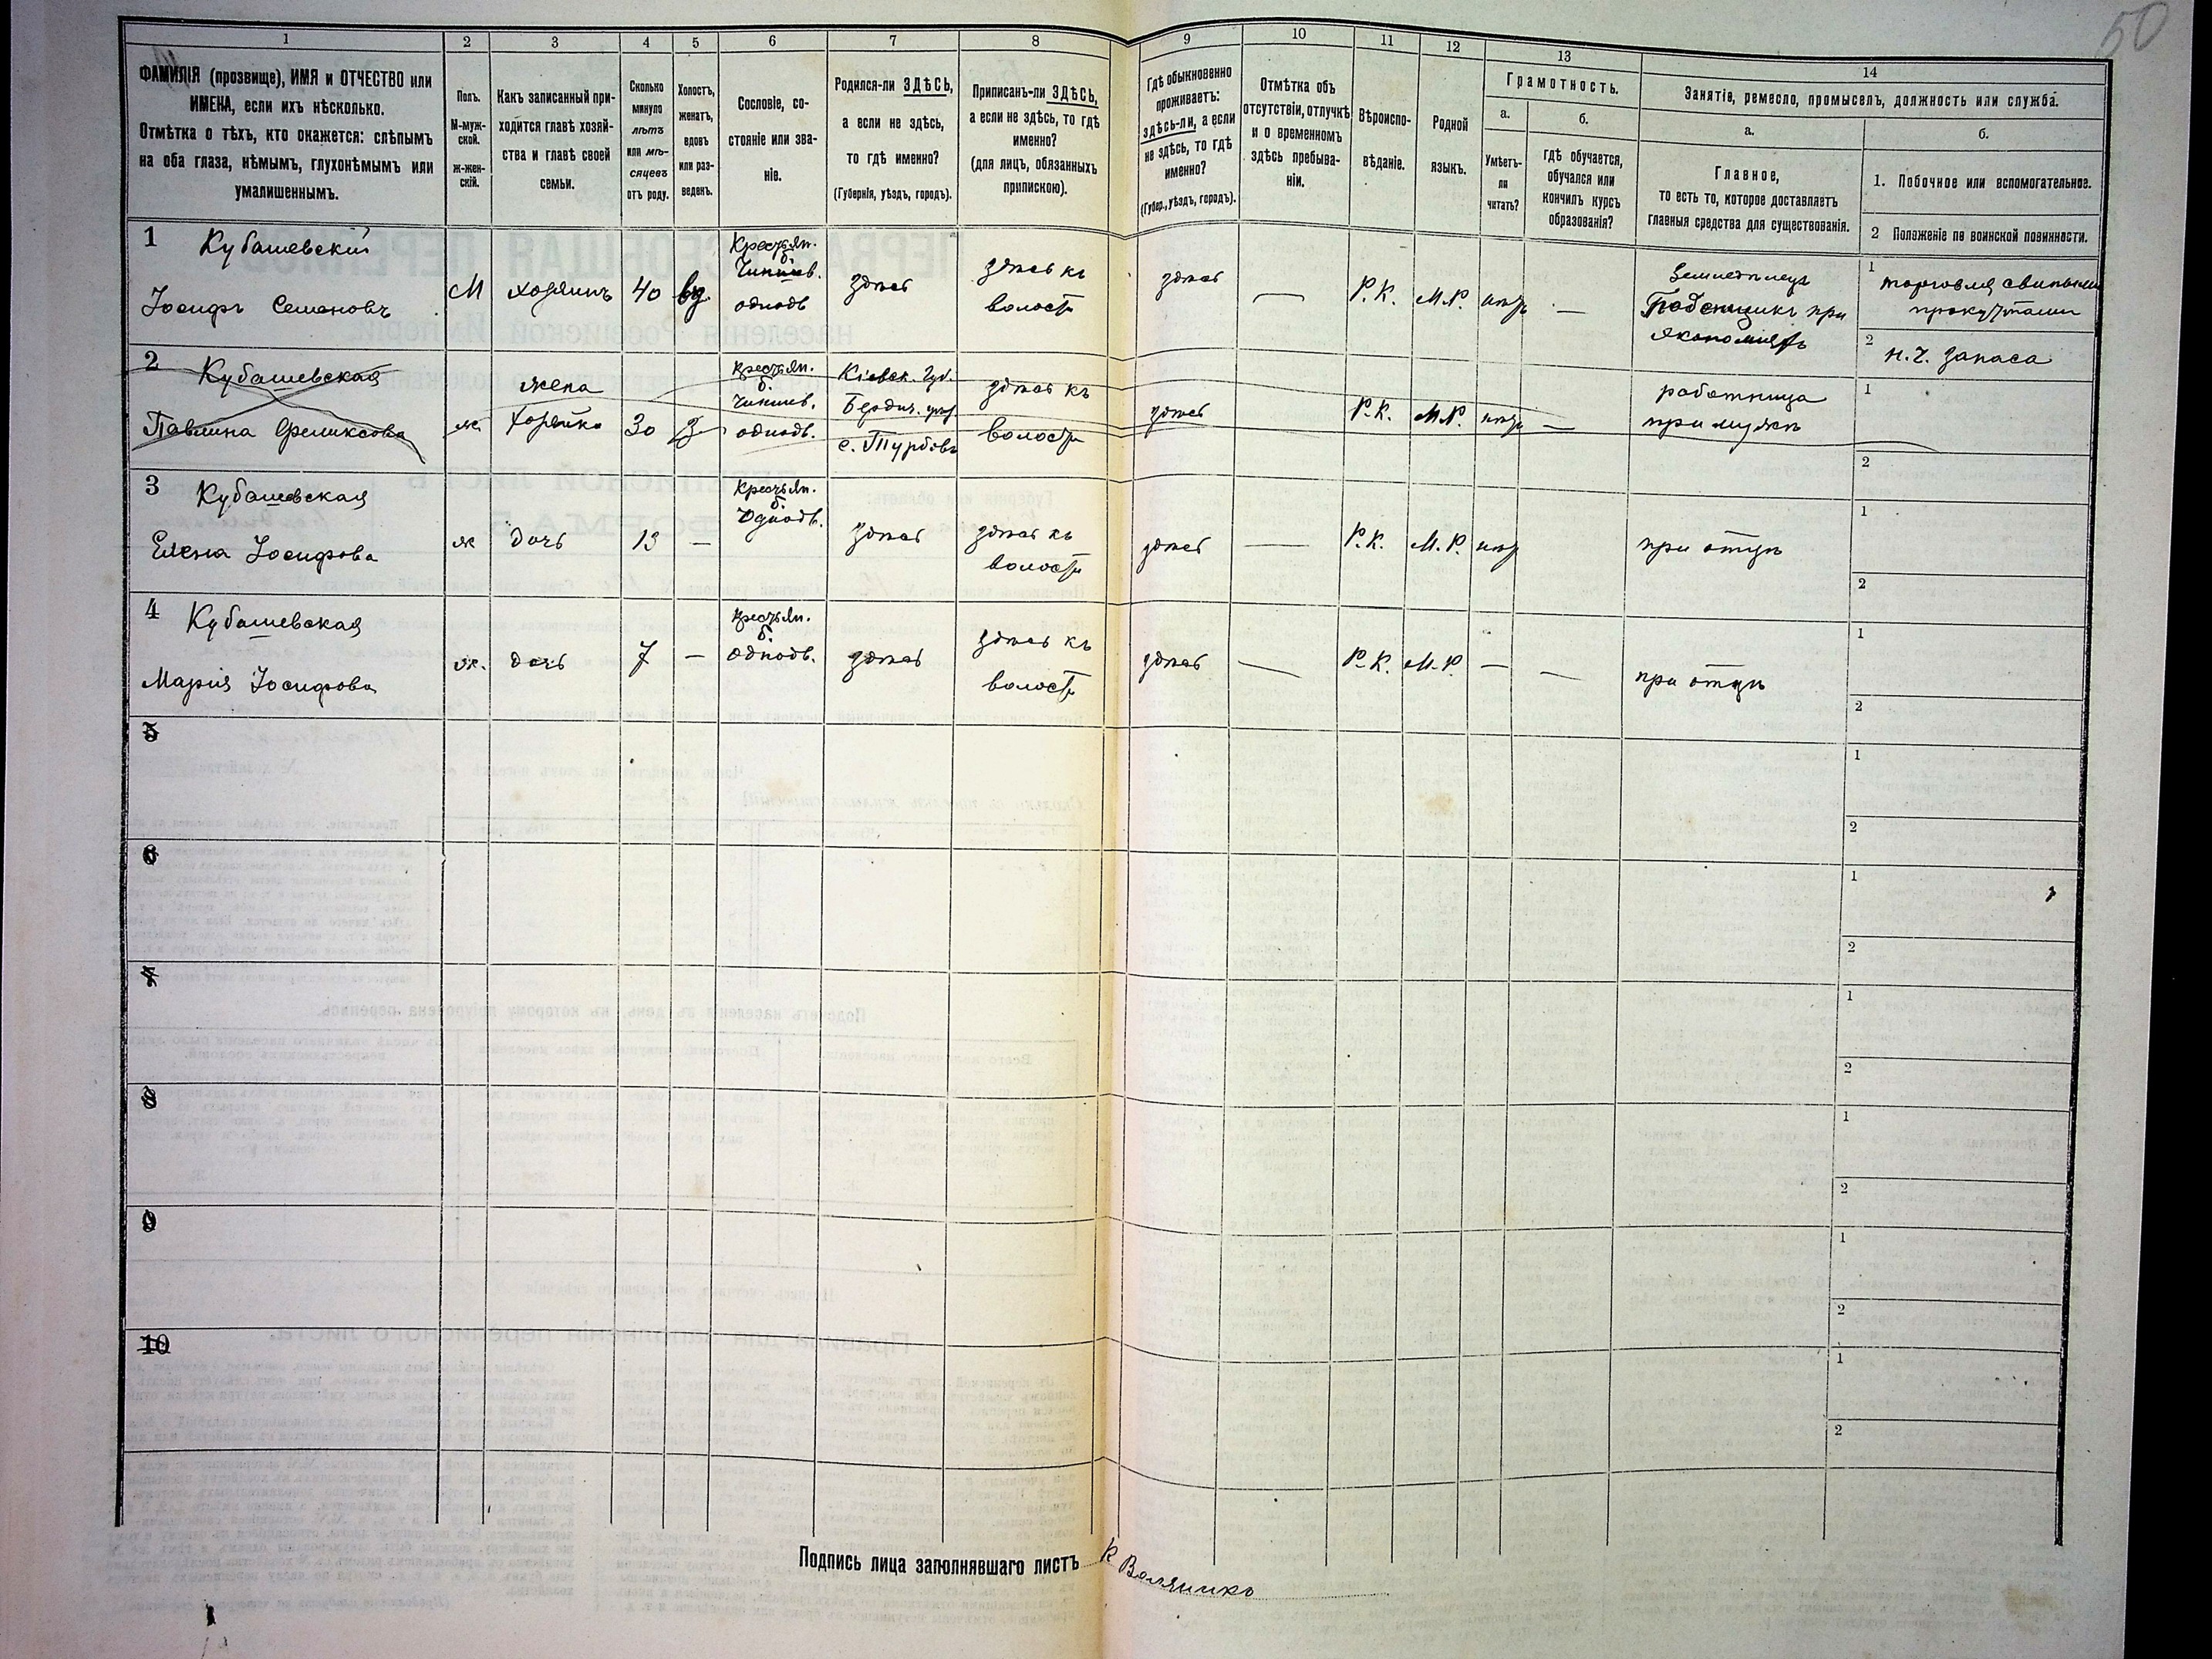 50
1
2
3
4
5
6
7
8
9
10
11
12
13
14
ФАМИЛІЯ (прозвище), ИМЯ и ОТЧЕСТВО или
ИМЕНА, если ихъ нѣсколько.
Отмѣтка о тѣхъ, кто окажется: слѣпымъ
на оба глаза, нѣмымъ, глухонѣмымъ или
умалишеннымъ.
Полъ.
М-муж-
ской.
ж-жен-
скій.
Какъ записанный при-
ходится главѣ хозяй-
ства и главѣ своей
семьи.
Сколько
минуло
лѣтъ
или мѣ-
сяцевъ
отъ роду.
Холостъ,
женатъ,
вдовъ
или раз-
веденъ.
Сословіе, со-
стояніе или зва-
ніе.
Родился-ли ЗДѢСЬ,
а если не здѣсь,
то гдѣ именно?
(Губернія, уѣздъ, городъ).
Приписанъ-ли ЗДѢСЬ,
а если не здѣсь, то гдѣ
именно?
(для лицъ, обязанныхъ
припискою).
Гдѣ обыкновенно
проживаетъ:
здѣсь-ли, а если
не здѣсь, то гдѣ
именно?
(Губер., уѣздъ, городъ).
Отмѣтка объ
отсутствіи, отлучкѣ
и о временномъ
здѣсь пребыва-
ніи.
Вѣроиспо-
вѣданіе.
Родной
языкъ.
Грамотность.
а.
Умѣетъ-
ли
читать?
б.
гдѣ обучается,
обучался или
кончилъ курсъ
образованія?
Занятіе, ремесло, промыселъ, должность или служба.
а.
Главное,
то есть то, которое доставляетъ
главныя средства для существованія.
б.
1. Побочное или вспомогательное.
2 Положеніе по воинской повинности.
1
Кубашевскій
Іосифъ Семеновъ
М
хозяинъ
40
вд.
Крестьян.
б.
Чиншев.
однодв.
здѣсь
здѣсь къ
волости
здѣсь
—
Р.К.
М.Р.
—
Земледѣлецъ
при
экономіи
1
торговля свиными
2
н.ч. запаса
2
Кубашевская
Павлина Феликсова
ж
жена
хозяйка
30
з
крестьян.
б.
Чиншев.
однодв.
Кіевск. Губ.
Бердич. уѣз.
с. Турбовъ
здѣсь къ
волости
здѣсь
Р.К.
М.Р.
—
работница
при мужѣ
1
2
3
Кубашевская
Елена Іосифова
ж
дочь
13
—
Крестьян.
б.
Однодв.
здѣсь
здѣсь къ
волости
здѣсь
—
Р.К.
М.Р.
при отцѣ
1
2
4
Кубашевская
Марія Іосифова
ж.
дочь
7
—
крестьян.
б.
однодв.
здѣсь
здѣсь къ
волости
здѣсь
—
Р.К.
М.Р.
—
—
при отцѣ
1
2
5
1
2
6
1
2
7
1
2
8
1
2
9
1
2
10
1
2
Подпись лица заполнявшаго листъ